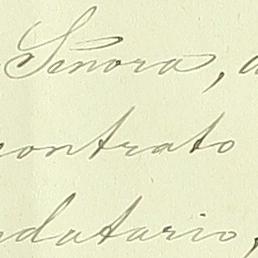 Señora,
contrato
datario,